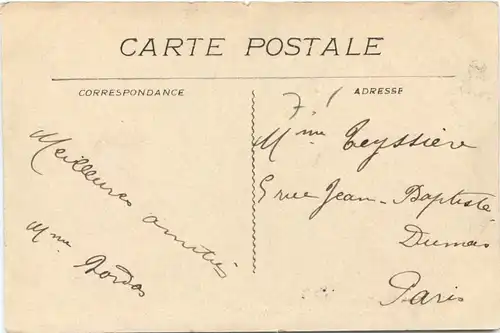 CARTE POSTALE
CORRESPONDANCE
ADRESSE
Meilleures amitiés
Mme Bordas
Mme Teyssière
5 rue Jean-Baptiste
Dumas
Paris